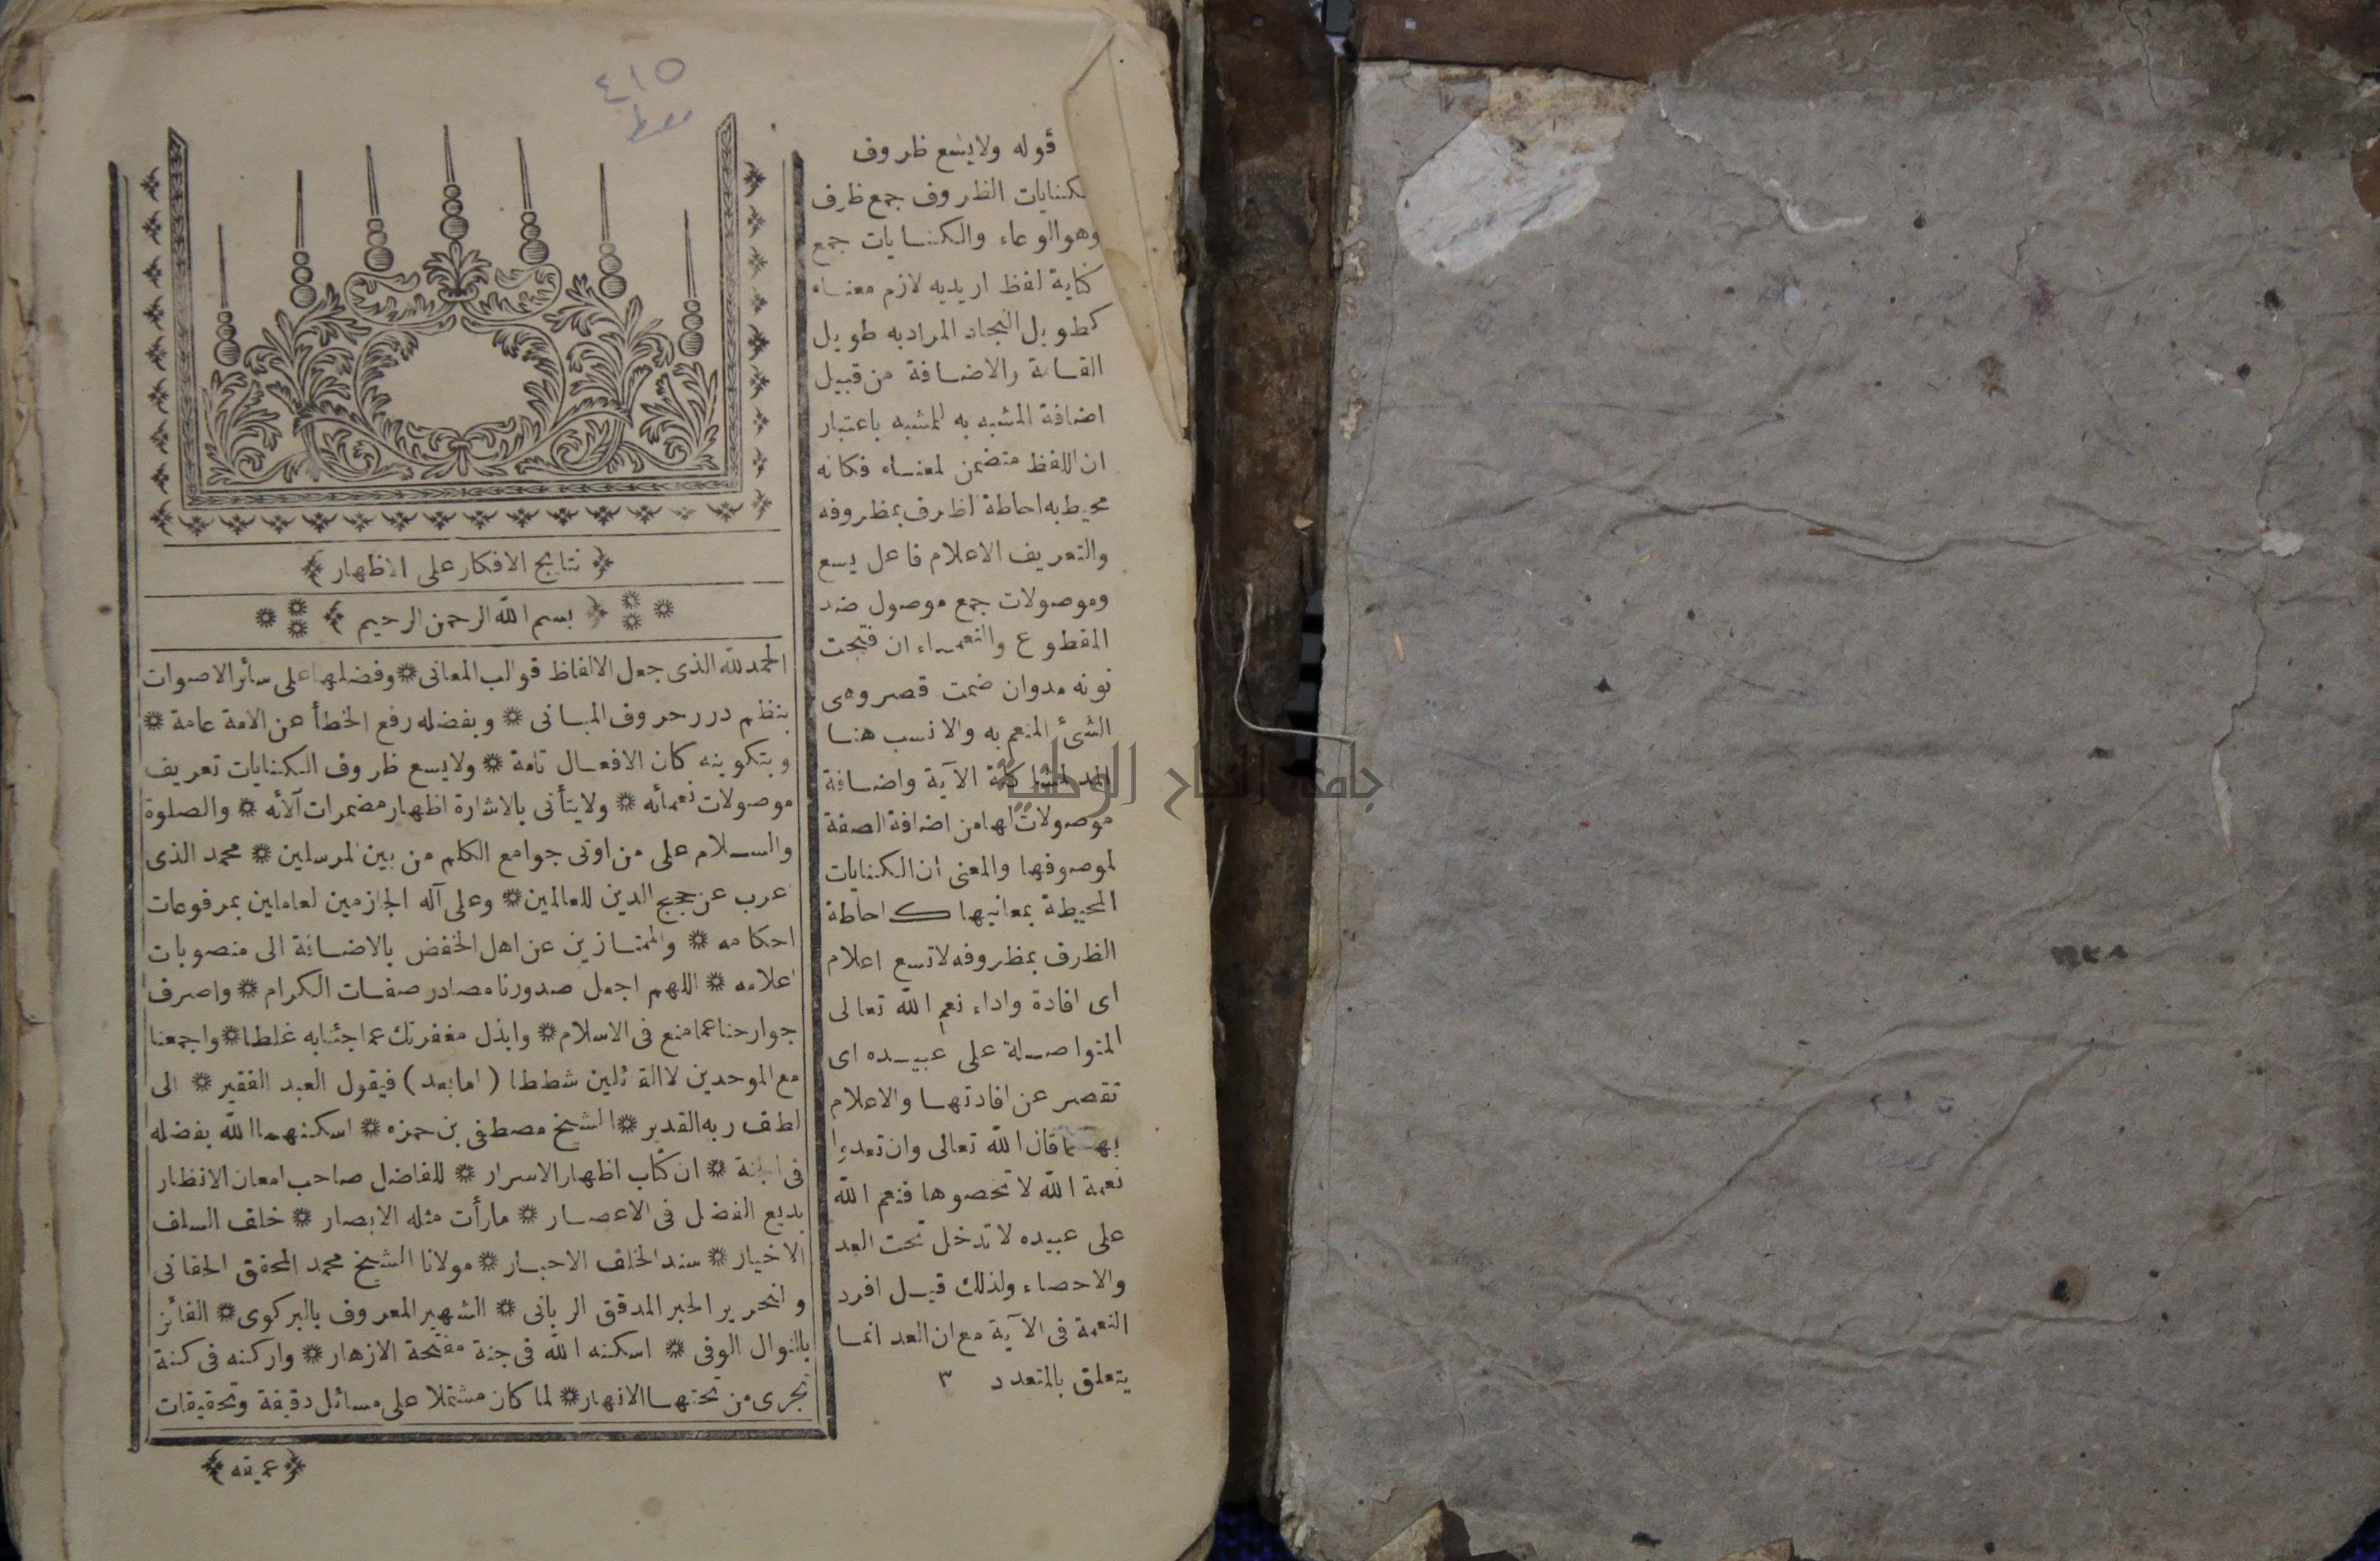 ٤١٥
قوله ولا يسع ظروف
الكنايات الظروف جمع ظرف
وهو الوعاء والكنايات جمع
كناية لفظ اريد به لازم معناه
كطويل النجاد المراد به طويل
القامة والاضافة من قبيل
اضافة المشبه به للمشبه باعتبار
ان اللفظ متضمن لمعناه فكانه
محيط به احاطة الظرف بمظروفه
والتعريف الاعلام فاعل يسع
وموصولات جمع موصول ضد
المقطوع والنعماء ان فتحت
نونه مد وان ضمت قصر وهى
الشئ المنعم به والانسب هنا
المد لمشاكلة الآية واضافة
موصولات لها من اضافة الصفة
لموصوفها والمعنى ان الكنايات
المحيطة بمعانيها كاحاطة
الظرف بمظروفه لا تسع اعلام
اى افادة واداء نعم الله تعالى
المتواصلة على عبيده اى
تقصر عن افادتها والاعلام
بها كما قال الله تعالى وان تعدوا
نعمة الله لا تحصوها فنعم الله
على عبيده لا تدخل تحت العد
والاحصاء ولذلك قيل افرد
النعمة فى الآية مع ان العد انما
يتعلق بالمتعدد ٣
﴿ نتايج الافكار على الاظهار ﴾
﴿ بسم الله الرحمن الرحيم ﴾
الحمد لله الذى جعل الالفاظ قوالب المعانى * وفضلها على سائر الاصوات
بنظم درر حروف المبانى * وبفضله رفع الخطأ عن الامة عامة *
وبتكوينه كان الافعال تامة * ولا يسع ظروف الكنايات تعريف
موصولات نعمائه * ولا يتأتى بالاشارة اظهار مضمرات آلائه * والصلوة
والسلام على من اوتى جوامع الكلم من بين المرسلين * محمد الذى
عرب عن حجج الدين للعالمين * وعلى آله الجازمين لعاملين بمرفوعات
احكامه * والممتازين عن اهل الخفض بالاضافة الى منصوبات
اعلامه * اللهم اجعل صدورنا مصادر صفات الكرام * واصرف
جوارحنا عما منع فى الاسلام * وابذل مغفرتك عما جئنا به غلطا * واجمعنا
مع الموحدين لا القائلين شططا ( اما بعد ) فيقول العبد الفقير * الى
لطف ربه القدير * الشيخ مصطفى بن حمزه * اسكنهما الله بفضله
فى الجنة * ان كتاب اظهار الاسرار * للفاضل صاحب امعان الانظار
بديع الفضل فى الاعصار * ما رأت مثله الابصار * خلف السلف
الاخيار * سند الخلف الاحبار * مولانا الشيخ محمد المحقق الحقانى
والنحرير الحبر المدقق الربانى * الشهير المعروف بالبركوى * الفائز
بالنوال الوفى * اسكنه الله فى جنة مفتحة الازهار * واركنه فى كنة
تجرى من تحتها الانهار * لما كان مشتملا على مسائل دقيقة وتحقيقات
﴿ عميقه ﴾
جامعة النجاح الوطنية